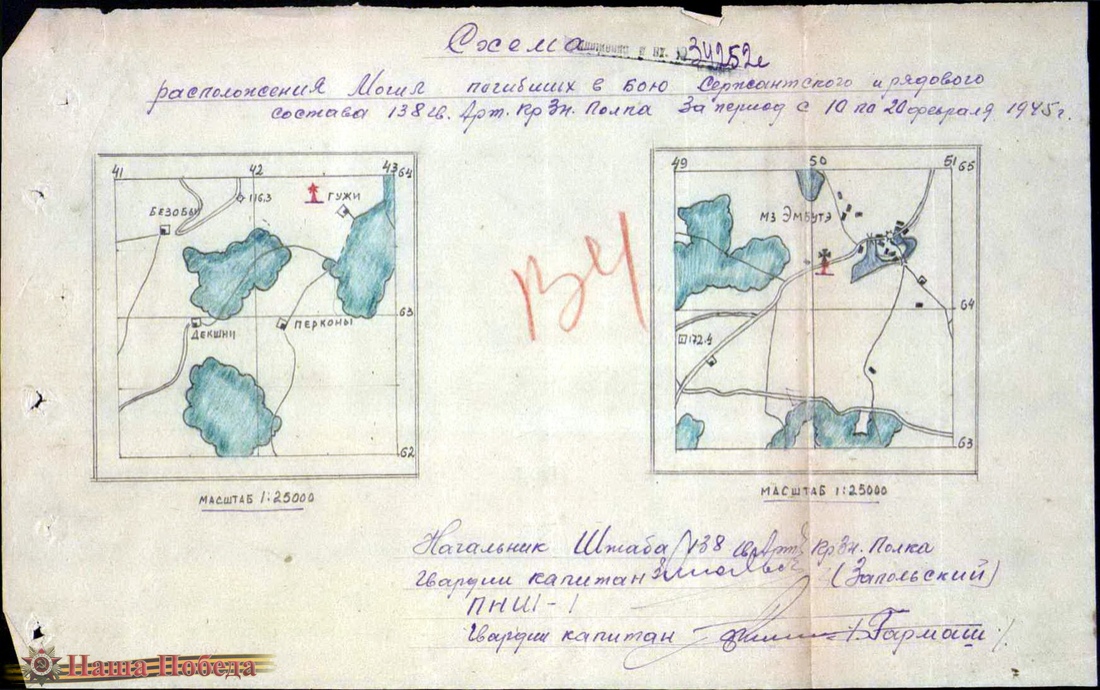 Схема
вх. № 34252с
расположения Могил погибших в бою Сержантского и рядового
состава 138 гв. Арт. Кр Зн. Полка за период с 10 по 20 февраля 1945г.
41 42 43 64
116.3 ГУЖИ
БЕЗОБЫ
63
ДЕКШНИ ПЕРКОНЫ
62
МАСШТАБ 1:25000
49 50 51 65
МЗ ЭМБУТЭ
64
172.4
63
МАСШТАБ 1:25000
Начальник Штаба 138 гв Арт Кр Зн. Полка
Гвардии капитан (Запольский)
ПНШ-1
Гвардии капитан Гармаш
Наша Победа